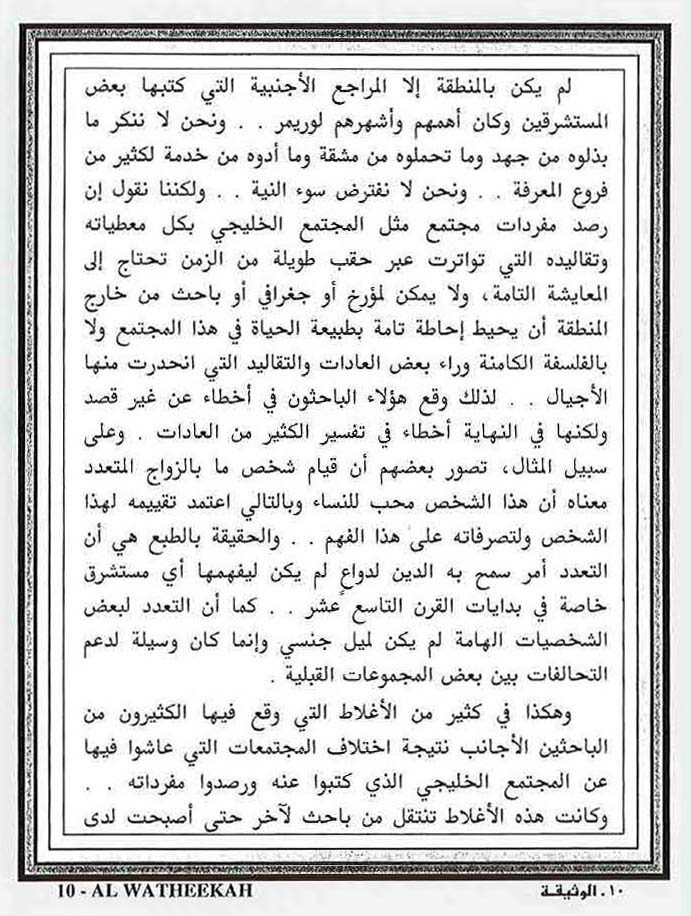 لم يكن بالمنطقة إلا المراجع الأجنبية التي كتبها بعض
المستشرقين وكان أهمهم وأشهرهم لوريمر . . ونحن لا ننكر ما
بذلوه من جهد وما تحملوه من مشقة وما أدوه من خدمة لكثير من
فروع المعرفة . . ونحن لا نفترض سوء النية . . ولكننا نقول إن
رصد مفردات مجتمع مثل المجتمع الخليجي بكل معطياته
وتقاليده التي تواترت عبر حقب طويلة من الزمن تحتاج إلى
المعايشة التامة، ولا يمكن لمؤرخ أو جغرافي أو باحث من خارج
المنطقة أن يحيط إحاطة تامة بطبيعة الحياة في هذا المجتمع ولا
بالفلسفة الكامنة وراء بعض العادات والتقاليد التي انحدرت منها
الأجيال . . لذلك وقع هؤلاء الباحثون في أخطاء عن غير قصد
ولكنها في النهاية أخطاء في تفسير الكثير من العادات . وعلى
سبيل المثال، تصور بعضهم أن قيام شخص ما بالزواج المتعدد
معناه أن هذا الشخص محب للنساء وبالتالي اعتمد تقييمه لهذا
الشخص ولتصرفاته على هذا الفهم . . والحقيقة بالطبع هي أن
التعدد أمر سمح به الدين لدواعٍ لم يكن ليفهمها أي مستشرق
خاصة في بدايات القرن التاسع عشر . . كما أن التعدد لبعض
الشخصيات الهامة لم يكن لميل جنسي وإنما كان وسيلة لدعم
التحالفات بين بعض المجموعات القبلية .
وهكذا في كثير من الأغلاط التي وقع فيها الكثيرون من
الباحثين الأجانب نتيجة اختلاف المجتمعات التي عاشوا فيها
عن المجتمع الخليجي الذي كتبوا عنه ورصدوا مفرداته . .
وكانت هذه الأغلاط تنتقل من باحث لآخر حتى أصبحت لدى
١٠ - الوثيقة
10 - AL WATHEEKAH